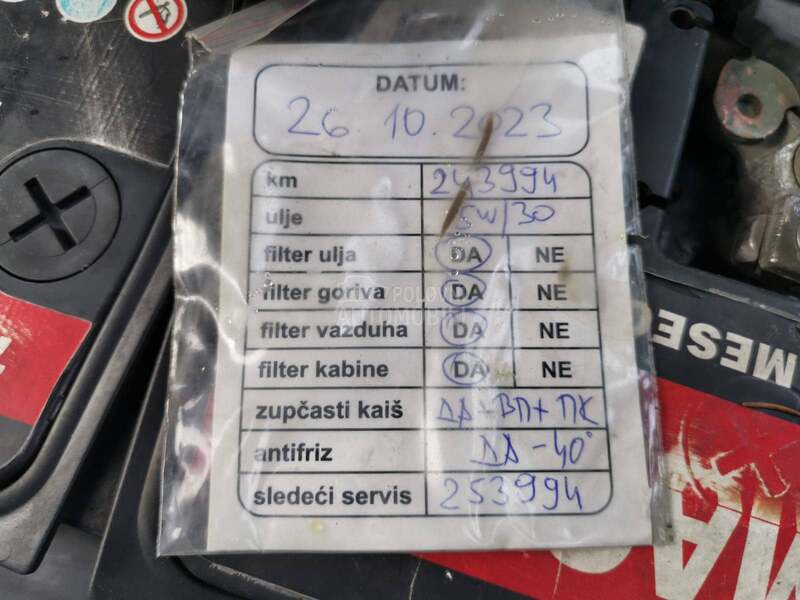 DATUM:
26.10.2023
km 243994
ulje 5W/30
filter ulja DA NE
filter goriva DA NE
filter vazduha DA NE
filter kabine DA NE
zupčasti kaiš ДА-ВП+ПК
antifriz ДА -40°
sledeći servis 253994
POLOVNI
AUTOMOBILI
MESEC